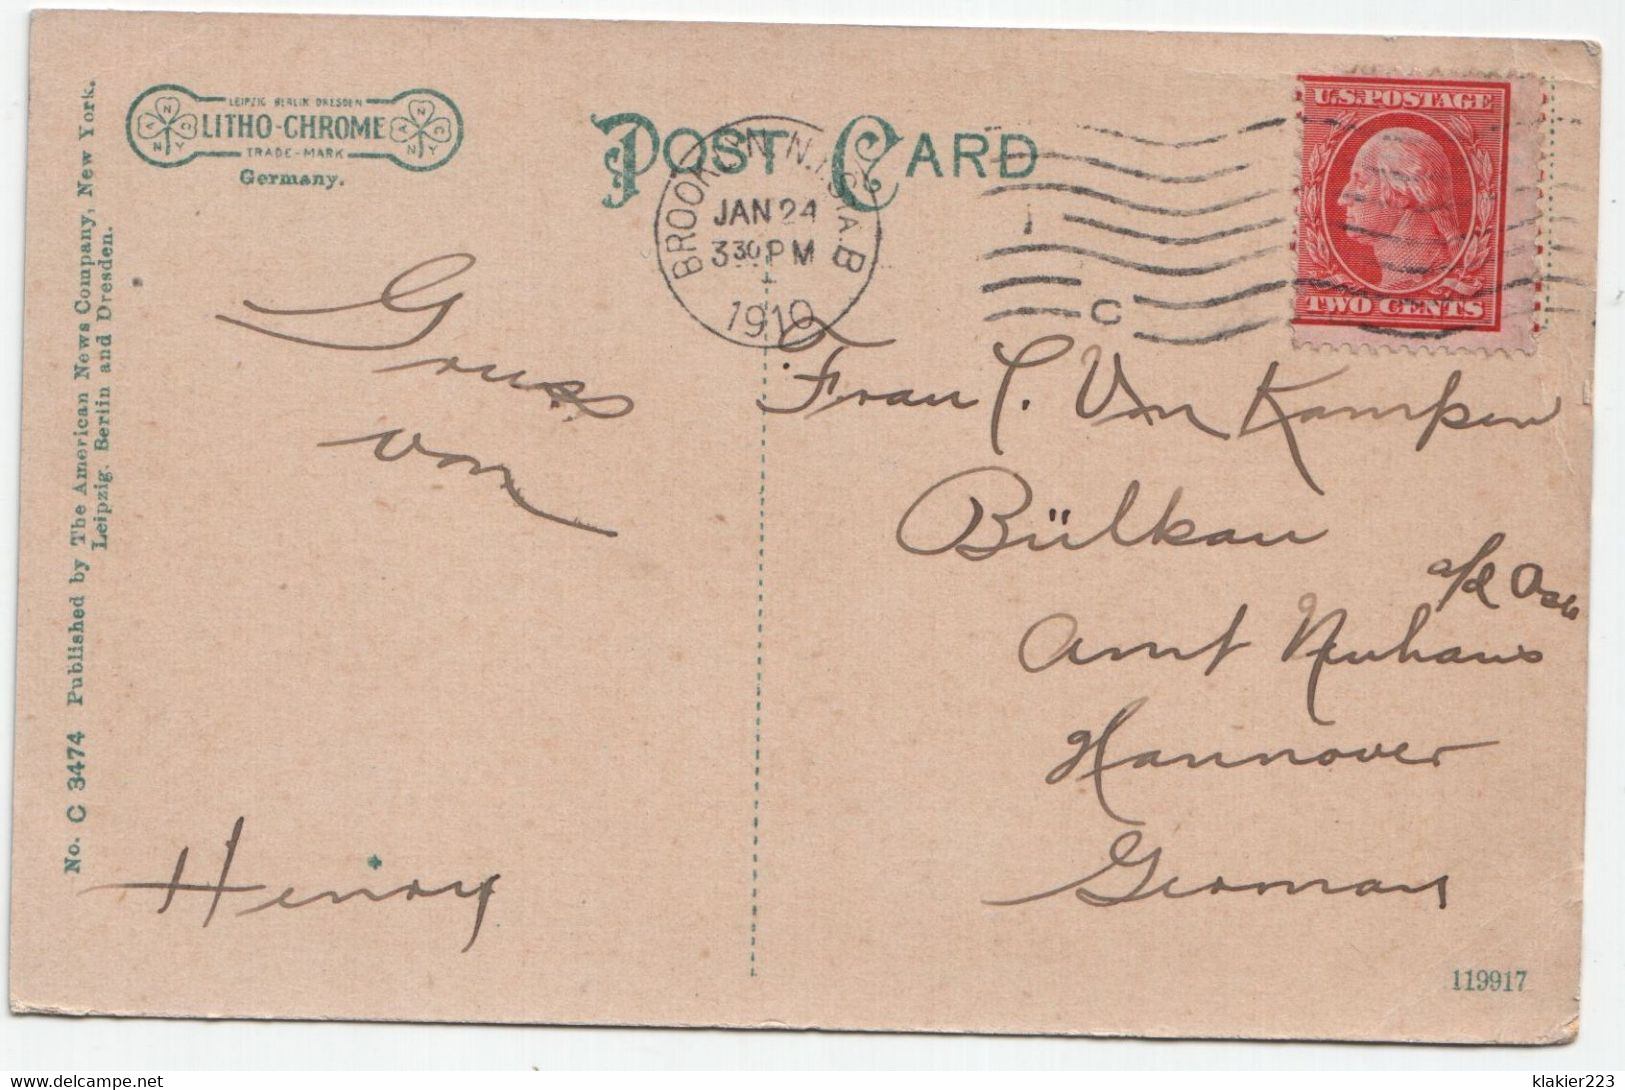 No. C 3474 Published by The American News Company, New York.
Leipzig. Berlin and Dresden.
LEIPZIG BERLIN DRESDEN
LITHO-CHROME
TRADE-MARK
Germany.
A N C N Y
POST CARD
BROOKLYN N.Y. STA. B
JAN 24
3 30 PM
1910
C
U.S. POSTAGE
TWO CENTS
Gruss
von
Henry
Frau C. Von Kampen
Bülkau
a/d Oste
Amt Neuhaus
Hannover
Germany
119917
klakier223